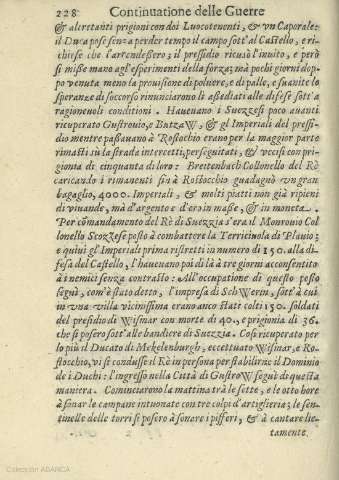 228 Continuatione delle Guerre
& alcretanti prigioni con doi Luocotenenti, & vn Caporale:
il Duca pose senza perder tempo il campo sott'al Castello, e ri-
chiese che l'arrendessero; il presidio ricusò l'inuito, e però
si misse mano agl'esperimenti della forza; mà pochi giorni dop-
po venuta meno la prouisione di poluere, e di palle, e suanite le
speranze di soccorso rinunciarono li assediati alle difese sott'a
ragioneuoli conditioni. Haueuano i Suezzesi poco auanti
ricuperato Gustrouio, e Butzaw, & gl'Imperiali del presi-
dio mentre passauano à Rostochio erano per la maggior parte
rimasti sù la strada intercetti, perseguitati, & vccisi con pri-
gionia di cinquanta di loro: Breitenbach Collonello del Rè
caricando i rimanenti sin à Rostocchio guadagnò vn gran
bagaglio, 4000. Imperiali, & molti piatti non già ripieni
di viuande, mà d'argento e d'oro in masse, & in moneta.
Per cõmandamento del Rè di Suezzia s'era il Monronio Col
lonello Scozzese posto à combattere la Terricciuola di Plauio;
e quiui gl'Imperiali prima ristretti in numero di 150. alla di-
fesa del Castello, l'haueuano poi di là à tre giorni acconsentito
à i nemici senza contrasto: All'occupatione di questo posto
seguì, com'è stato detto, l'impresa di Schwerin, sott'à cui
in vna villa vicinissima erano anco statt colti 130. soldati
del presidio di Wismar con morte di 40., e prigionia di 36.
che si posero sott'alle bandiere di Suezzia. Così ricuperato per
lo più il Ducato di Mekelenburgh, eccettuato Wismar, e Ro-
stocchio, vi si condusse il Rè in persona per stabilirne il Dominio
de i Duchi: l'ingresso nella Città di Gustrow seguì di questa
maniera. Cominciarono la mattina trà le sette, e le otto hore
à sonar le campane intuonate con tre colpi d'artiglieria; le sen-
tinelle delle torri si posero à sonare i pifferi, & à cantare lie-
tamente.
Colección ABANCA